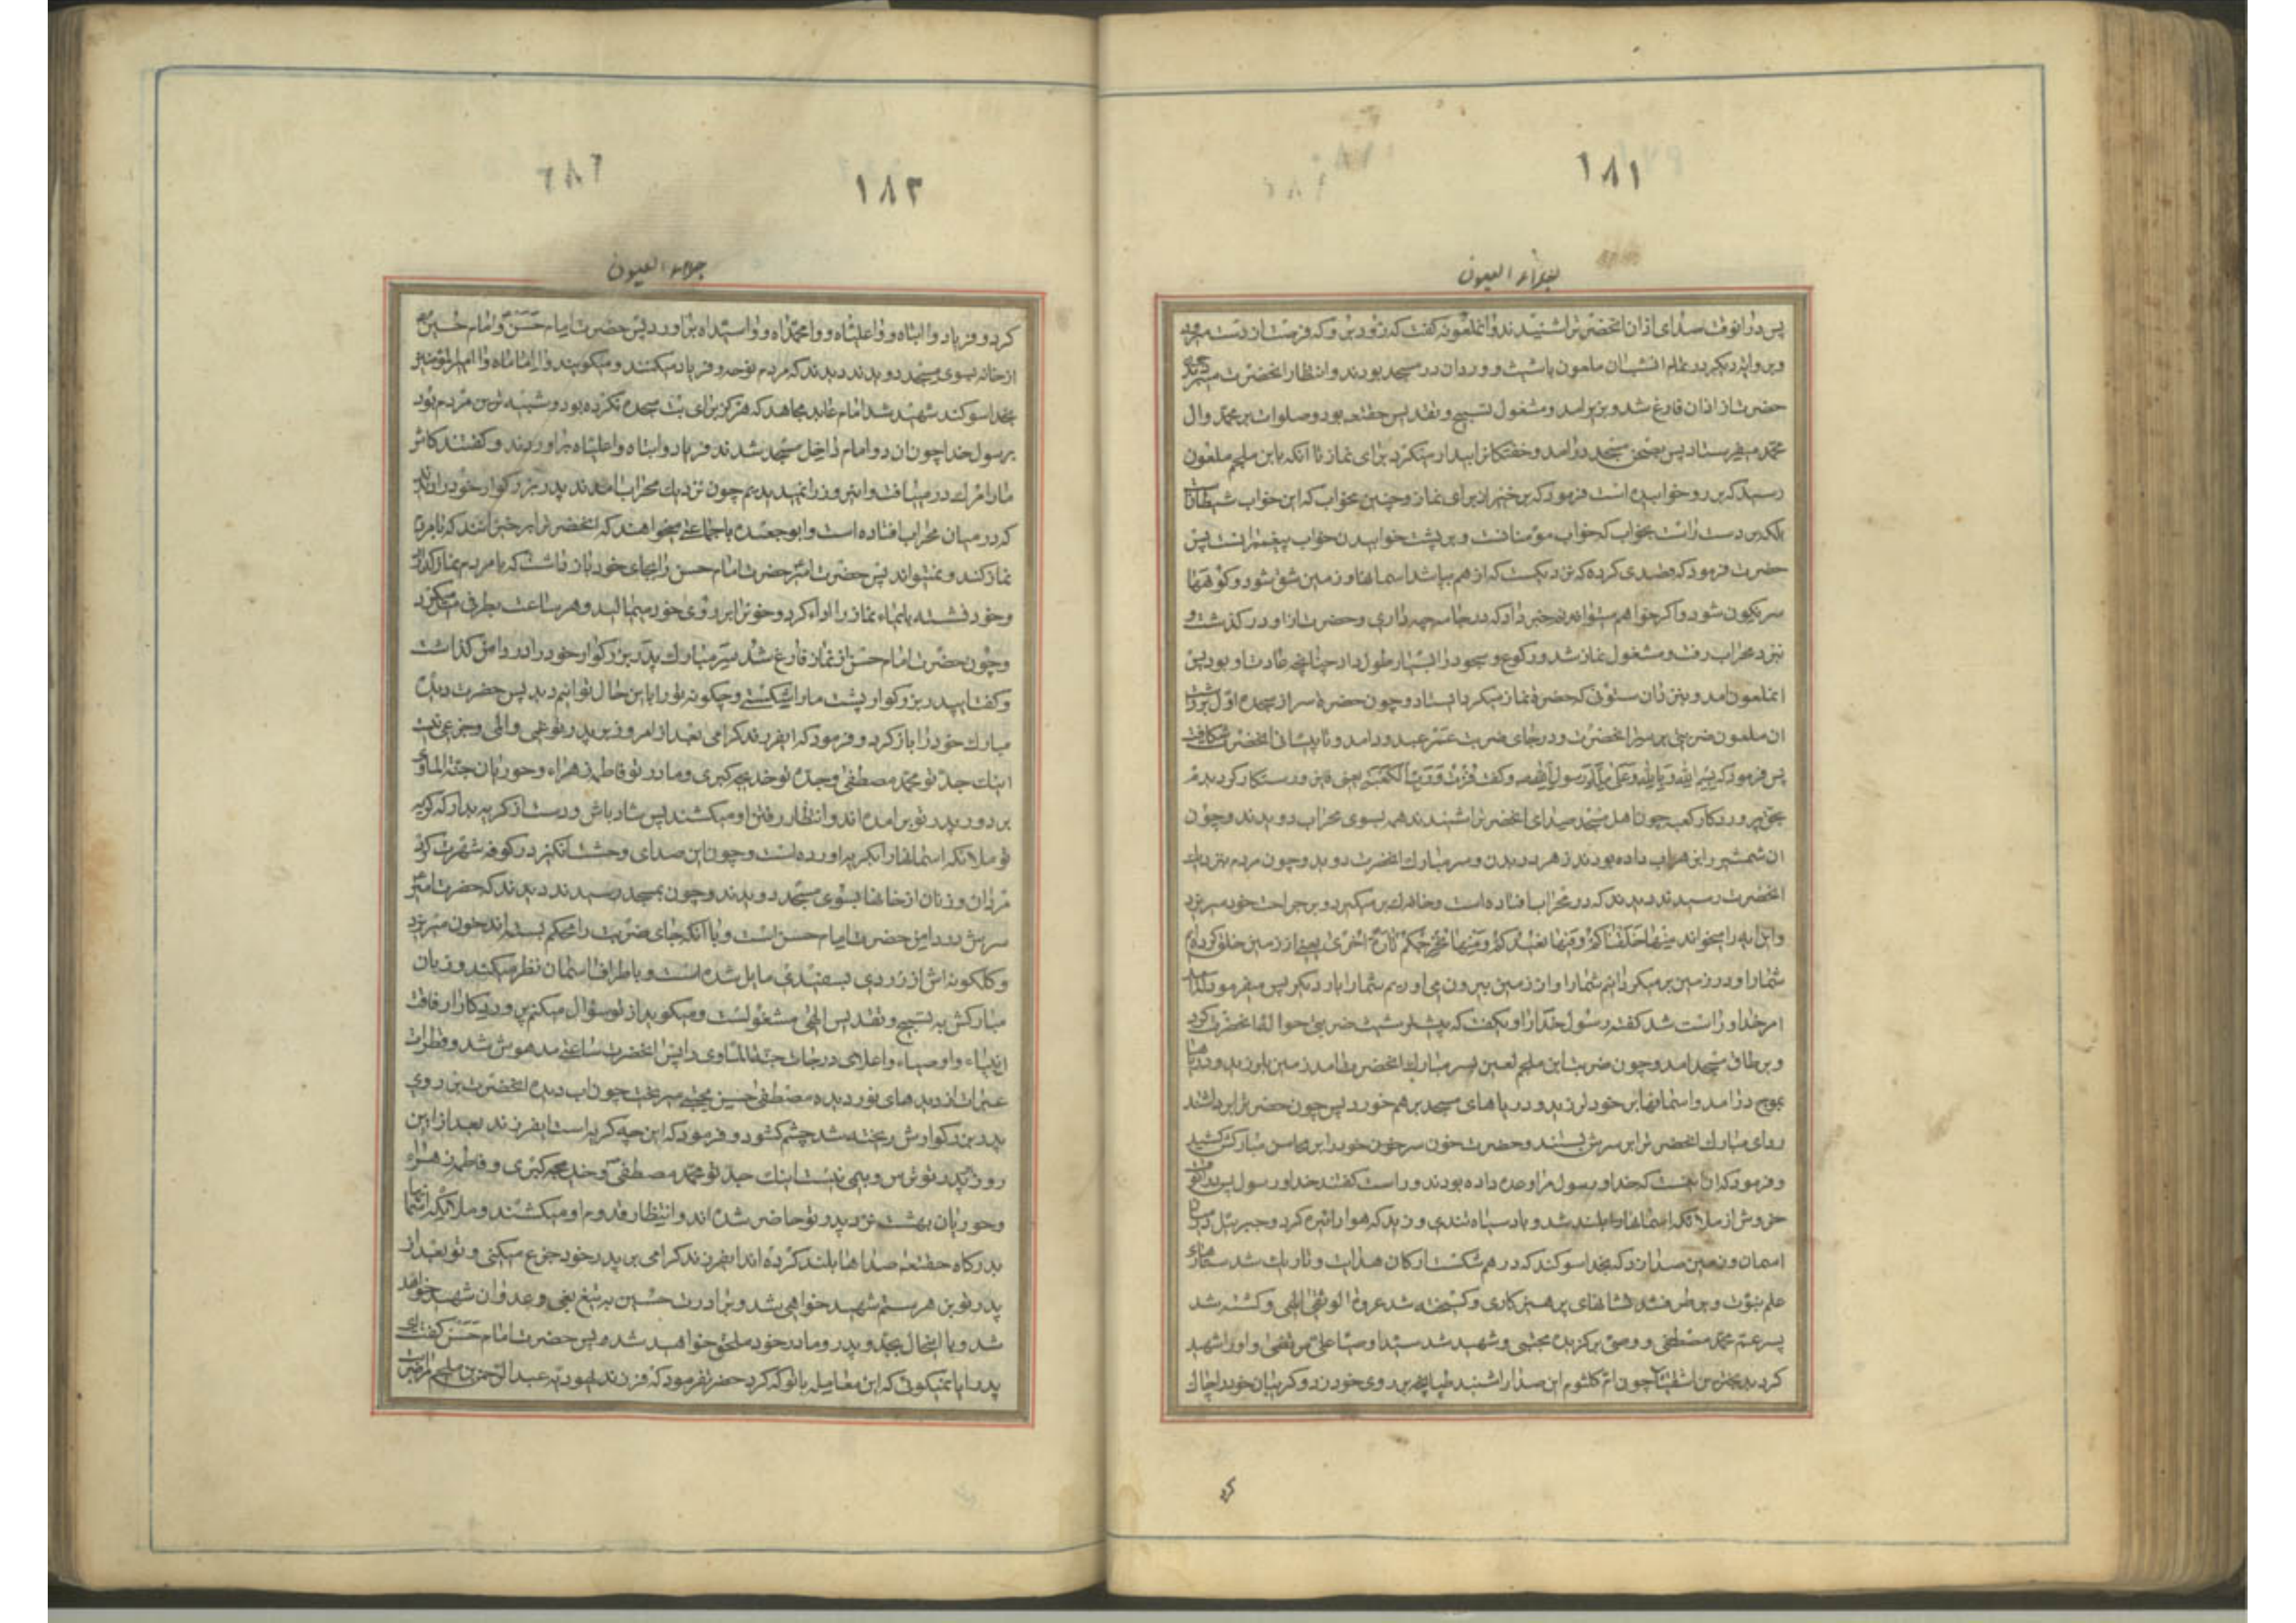 ۱۸۱
جلاء العیون
پس در انوقت صدای اذان انحضرترا شنیدند و انملعونه گفت که زود برو که فرصت از دست میرود
و بروایة دیکر در تمام انشب ان ملعون با شبث و وردان در مسجد بودند و انتظار انحضرت میبردند چون
حضرت از اذان فارغ شد و بزیر امد و مشغول تسبیح و تقدیس حقتعه بود و صلوات بر محمد و ال
محمد میفرستاد پس بصحن مسجد در امد و خفتکانرا بیدار میکرد برای نماز تا انکه بابن ملجم ملعون
رسید که بر رو خوابیده است فرمود که برخیز از برای نماز و چنین مخواب که این خواب شیطانست
بلکه بر دست راست بخواب که خواب مؤمنانست و بر پشت خوابیدن خواب پیغمبرانست پس
حضرت فرمود که قصدی کرده که نزدیکست که از هم بپاشد اسمانها و زمین شق شود و کوهها
سرنکون شود و اکر خواهم میتوانم خبر داد که در جامه چه داری و حضرت از او در کذشت و
بنزد محراب رفت و مشغول نماز شد و رکوع و سجود را بسیار طول داد چنانچه عادت او بود پس
انملعون امد و بنزد ان ستونی که حضرت نماز میکرد بایستاد و چون حضرت سر از سجده اول برداشت
ان ملعون ضربتی بر سر انحضرت زد و بر جای ضربت عمر عبدود امد و تا پیشانی انحضرت شکافت
پس فرمود که بسم الله و بالله و علی ملة رسول الله و گفت فزت و رب الکعبه یعنی فایز و رستکار کردیدم
بحق پروردکار کعبه چون اهل مسجد صدای انحضرترا شنیدند همه بسوی محراب دویدند و چون
ان شمشیر را بزهر اب داده بودند زهر در بدن و سر مبارک انحضرت دوید و چون مردم بنزدیک
انحضرت رسیدند دیدند که در محراب افتاده است و خاک بر میکیرد و بر جراحت خود میریزد
و این ایه را میخواند منها خلقناکم و فیها نعیدکم و منها نخرجکم تارة اخری یعنی از زمین خلق کرده‌ام
شما را و در زمین بر میکردانیم شما را و از زمین بیرون می اوریم شما را بار دیکر پس میفرمود که امد
امر خدا و راست شد گفته رسول خدا
و بر طاق مسجد امد و چون ضربت ابن ملجم لعین بسر مبارک انحضرت امد زمین بلرزید و دریاها
بموج در امد و اسمانها بر خود لرزید و درهای مسجد بر هم خورد پس چون حضرترا برداشتند
ردای مبارک انحضرترا بر سرش بستند و حضرت خون سر خود را بر محاسن مبارکش کشید
و فرمود که این انست که خدا و رسول مرا وعده داده بودند و راست گفتند خدا و رسول پس
خروش از ملائکه اسمانها بلند شد و باد سیاه تندی وزید که هوا را تیره کرد و جبرئیل در میان
اسمان و زمین صدا زد که بخدا سوکند که در هم شکست ارکان هدایت و تاریک شد ستارهای
علم نبوت و بر طرف شد نشانهای پرهیزکاری و کسیخته شد عروة الوثقی الهی و کشته شد
پسر عم محمد مصطفی و وصی برکزیده مجتبی و شهید شد سید اوصیا علی مرتضی و او را شهید
کرد بدبخت‌ترین اشقیا چون ام کلثوم این صدا را شنید طپانچه بر روی خود زد و کریبان خود را چاک
کرد
۱۸۲
جلاء العیون
کرد و فریاد وا ابتاه و وا علیاه و وا محمداه و وا سیداه براورد پس حضرت امام حسن و امام حسین
از خانه بسوی مسجد دویدند دیدند که مردم نوحه و فریاد میکنند و میکویند وا اماماه وا امیرالمؤمنین
بخدا سوکند شهید شد امام عابد مجاهد که هرکز برای بت سجده نکرده بود و شبیه‌ترین مردم بود
برسول خدا چون ان دو امام داخل مسجد شدند فریاد وا ابتاه وا علیاه براوردند و گفتند کاش
ما را مرک در مییافت و این روز را نمیدیدیم چون نزدیک محراب امدند پدر بزرکوار خود را دیدند
که در میان محراب افتاده است و ابو جعده با جماعتی میخواهند که انحضرترا برخیزانند که با مردم
نماز کند و نمیتواند پس حضرت امیر حضرت امام حسن را بجای خود باز داشت که با مردم نماز کذارد
و خود نشسته بایماء نماز را اداء کرد و خونرا بر روی خود میمالید و هر ساعت بطرفی میل میکرد
و چون حضرت امام حسن از نماز فارغ شد سر مبارک پدر بزرکوار خود را در دامن کذاشت
و گفت ای پدر بزرکوار پشت ما را شکستی و چکونه تو را باین حال توانیم دید پس حضرت دیده
مبارک خود را باز کرد و فرمود که ایفرزند کرامی بعد از امروز بر پدر تو غمی و المی و جزعی نیست
اینک جد تو محمد مصطفی و جده تو خدیجه کبری و مادر تو فاطمه زهراء و حوریان جنة الماوی
بر دور پدر تو بر امده اند و انتظار رفتن او میکشند پس شاد باش و دست از کریه بدار که کریه
تو ملائکه اسمانها را بکریه اورده است و چون این صدای وحشت انکیز در کوفه شهرت کرد
مردان و زنان از خانها بسوی مسجد دویدند و چون بمسجد رسیدند دیدند که حضرت امیر
سرش در دامن حضرت امام حسن است و با انکه جای ضربت را محکم بسته اند خون میریزد
و کلکونه اش از زردی بسفیدی مایل شده است و باطراف اسمان نظر میکند و زبان
مبارکش به تسبیح و تقدیس الهی مشغولست و میکوید از تو سؤال میکنم پروردکارا رفاقت
انبیاء و اوصیاء و اعلای درجات جنة الماوی را پس انحضرت ساعتی مدهوش شد و قطرات
عبرات از دیدهای نور دیده مصطفی حسن مجتبی میریخت چون اب دیده انحضرت بر روی
پدر بزرکوارش ریخته شد چشم کشود و فرمود که این چه کریه است ایفرزند بعد از این
روز پدر تو ترس و بیمی نیست اینک جد تو محمد مصطفی و خدیجه کبری و فاطمه زهراء
و حوریان بهشت نزد پدر تو حاضر شده اند و انتظار قدوم او میکشند و ملائکه اسمانها
بدرکاه حقتعه صداها بلند کرده اند ایفرزند کرامی بر پدر خود جزع میکنی و تو بعد از
پدر تو بزهر ستم شهید خواهی شد و برادرت حسین به تیغ بغی و عدوان شهید خواهد
شد و با اینحال بجد و پدر و مادر خود ملحق خواهید شد پس حضرت امام حسن گفت ای
پدر ایا نمیکوئی که این معامله با تو که کرد حضرت فرمود که فرزند یهودیه عبدالرحمن بن ملجم